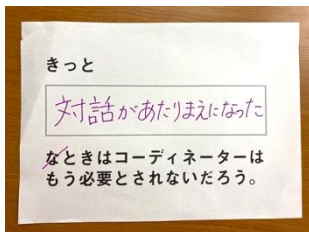 きっと
対話があたりまえになった
なときはコーディネーターは
もう必要とされないだろう。